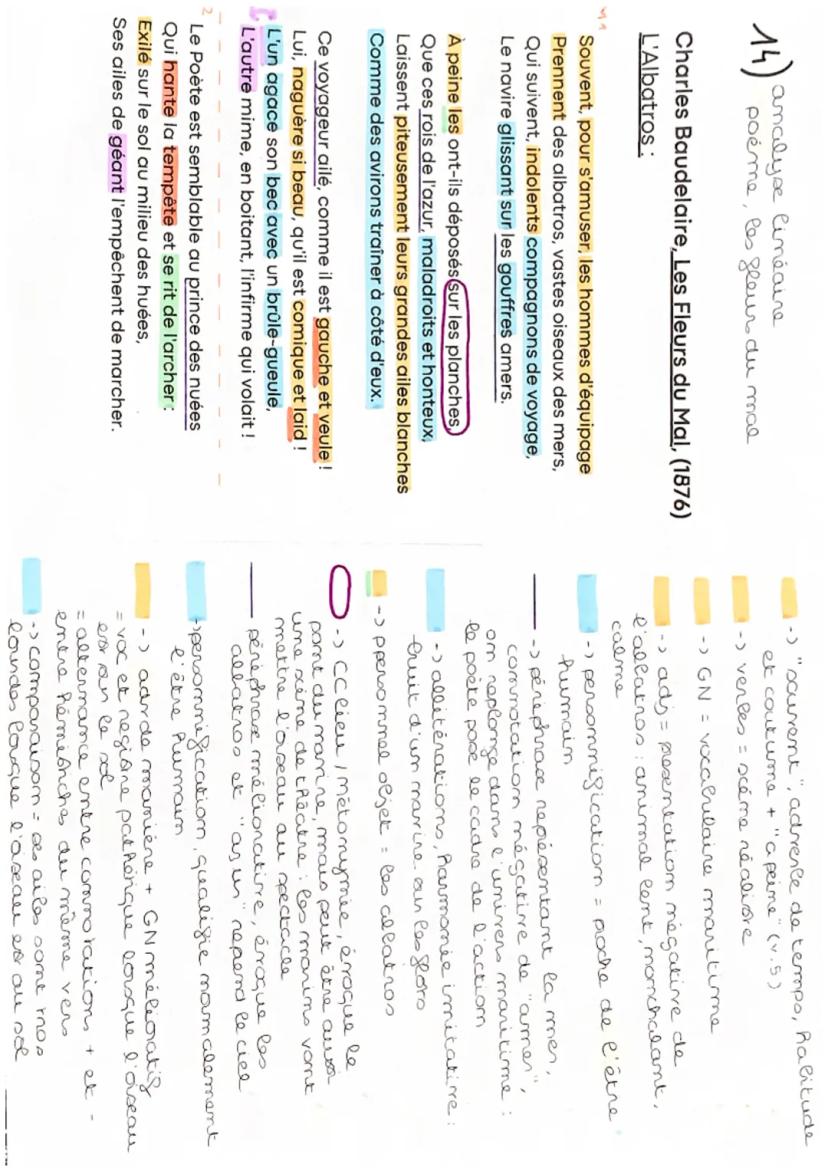 14) analyse linéaire
poème, les fleurs du mal
Charles Baudelaire, Les Fleurs du Mal, (1876)
L'Albatros :
Souvent, pour s'amuser, les hommes d'équipage
Prennent des albatros, vastes oiseaux des mers,
Qui suivent, indolents compagnons de voyage,
Le navire glissant sur les gouffres amers.
À peine les ont-ils déposés sur les planches,
Que ces rois de l'azur, maladroits et honteux,
Laissent piteusement leurs grandes ailes blanches
Comme des avirons traîner à côté d'eux.
Ce voyageur ailé, comme il est gauche et veule !
Lui, naguère si beau, qu'il est comique et laid !
L'un agace son bec avec un brûle-gueule,
L'autre mime, en boitant, l'infirme qui volait !
2
Le Poète est semblable au prince des nuées
Qui hante la tempête et se rit de l'archer :
Exilé sur le sol au milieu des huées,
Ses ailes de géant l'empêchent de marcher.
-> "souvent", adverbe de temps, habitude
et coutume + "a peine" (v.5)
-> verbes = scène réaliste
-> GN = vocabulaire maritime
-> adj = présentation négative de
l'albatros : animal lent, nonchalant,
calme
-> personnification = proche de l'être
humain
-> périphrase représentant la mer,
connotation négative de "amer",
on replonge dans l'univers maritime :
le poète pose le cadre de l'action
-> allitérations, harmonie imitative :
bruit d'un navire sur les flots
-> ppersonnel objet = les albatros
-> CC lieu / métonymie, évoque le
pont du navire, mais peut être aussi
une scène de théâtre : les marins vont
mettre l'oiseau au spectacle
périphrase méliorative, évoque les
albatros et "azur" reprend le ciel
->personnification, qualifie normalement
l'être humain
-> adv de manière + GN mélioratif
= voc et registre pathétique lorsque l'oiseau
est sur le sol
= alternance entre connotations + et -
entre hémistiches du même vers
-> comparaison = ses ailes sont trop
lourdes lorsque l'oiseau est au sol